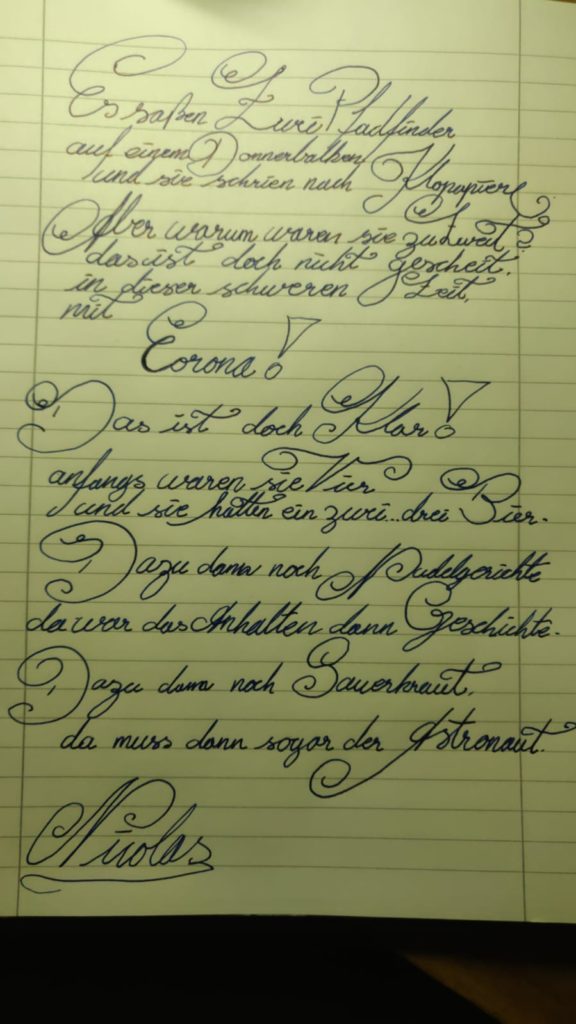 Es saßen Zwei Pfadfinder
auf einem Donnerbalken
und sie schrien nach Klopapier
Aber warum waren sie zu Zweit?
das ist doch nicht gescheit.
in dieser schweren Zeit,
mit
Corona!
Das ist doch Klar!
anfangs waren sie Vier
und sie hatten ein zwei...drei Bier.
Dazu dann noch Nudelgerichte
da war das Anhalten dann Geschichte.
Dazu dann noch Sauerkraut,
da muss dann sogar der Astronaut.
Nicolas